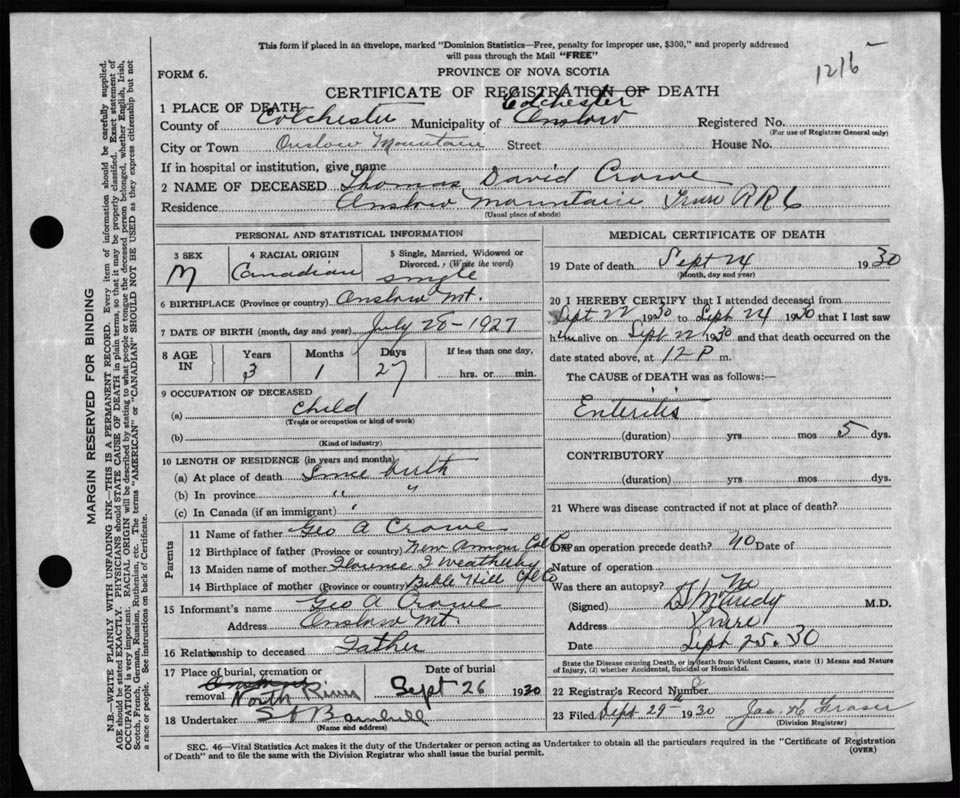 This form if placed in an envelope, marked "Dominion Statistics—Free, penalty for improper use, $300," and properly addressed
will pass through the Mail "FREE"
1216
FORM 6.
PROVINCE OF NOVA SCOTIA
CERTIFICATE OF REGISTRATION OF DEATH
1 PLACE OF DEATH
Colchester
County of Colchester Municipality of Onslow Registered No.
(For use of Registrar General only)
City or Town Onslow Mountain Street House No.
If in hospital or institution, give name
2 NAME OF DECEASED Thomas David Crowe
Residence Onslow Mountain Truro RR 6
(Usual place of abode)
PERSONAL AND STATISTICAL INFORMATION
3 SEX 4 RACIAL ORIGIN 5 Single, Married, Widowed or
Divorced. (Write the word)
M Canadian single
6 BIRTHPLACE (Province or country) Onslow Mt.
7 DATE OF BIRTH (month, day and year) July 28-1927
8 AGE IN Years Months Days If less than one day,
3 1 27 hrs. or min.
9 OCCUPATION OF DECEASED
(a) child
(Trade or occupation or kind of work)
(b)
(Kind of industry)
10 LENGTH OF RESIDENCE (in years and months)
(a) At place of death Since birth
(b) In province " "
(c) In Canada (if an immigrant) "
Parents
11 Name of father Geo A Crowe
12 Birthplace of father (Province or country) New Annan Col Co
13 Maiden name of mother Florence I Weatherby
14 Birthplace of mother (Province or country) Bible Hill Col Co
15 Informant's name Geo A Crowe
Address Onslow Mt.
16 Relationship to deceased Father
17 Place of burial, cremation or Date of burial
removal North River Sept 26 1930
18 Undertaker Barnhill
(Name and address)
MEDICAL CERTIFICATE OF DEATH
19 Date of death Sept 24 1930
(Month, day and year)
20 I HEREBY CERTIFY that I attended deceased from
Sept 22 1930 to Sept 24 1930 that I last saw
him alive on Sept 22 1930 and that death occurred on the
date stated above, at 12 P m.
The CAUSE of DEATH was as follows:—
Enteritis
(duration) yrs mos 5 dys.
CONTRIBUTORY
(duration) yrs. mos. dys.
21 Where was disease contracted if not at place of death?
Did an operation precede death? No Date of
Nature of operation
Was there an autopsy? No
(Signed) M.D.
Address Truro
Date Sept 25. 30
State the Disease causing Death, or in death from Violent Causes, state (1) Means and Nature
of Injury, (2) whether Accidental, Suicidal or Homicidal.
22 Registrar's Record Number
23 Filed Sept 29- 1930 Jas. Fraser
(Division Registrar)
SEC. 46—Vital Statistics Act makes it the duty of the Undertaker or person acting as Undertaker to obtain all the particulars required in the "Certificate of Registration
of Death" and to file the same with the Division Registrar who shall issue the burial permit. (OVER)
MARGIN RESERVED FOR BINDING
N.B.—WRITE PLAINLY WITH UNFADING INK—THIS IS A PERMANENT RECORD. Every item of information should be carefully supplied.
AGE should be stated EXACTLY. PHYSICIANS should STATE CAUSE OF DEATH in plain terms, so that it may be properly classified. Exact statement of
OCCUPATION is very important. RACIAL ORIGIN will be described by stating to what people or tongue the deceased person belonged, whether English, Irish,
Scotch, French, German, Russian, Ruthenian, etc. The terms "AMERICAN" or "CANADIAN" SHOULD NOT BE USED as they express citizenship but not
a race or people. See instructions on back of Certificate.